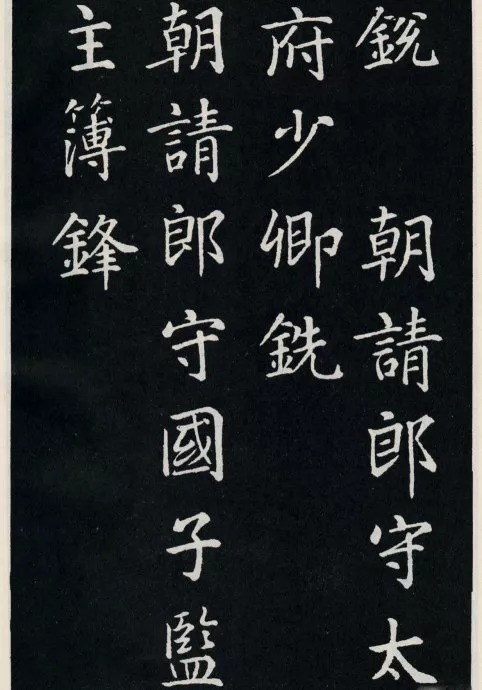 銳 朝請郎守太
府少卿銑
朝請郎守國子監
主簿鋒